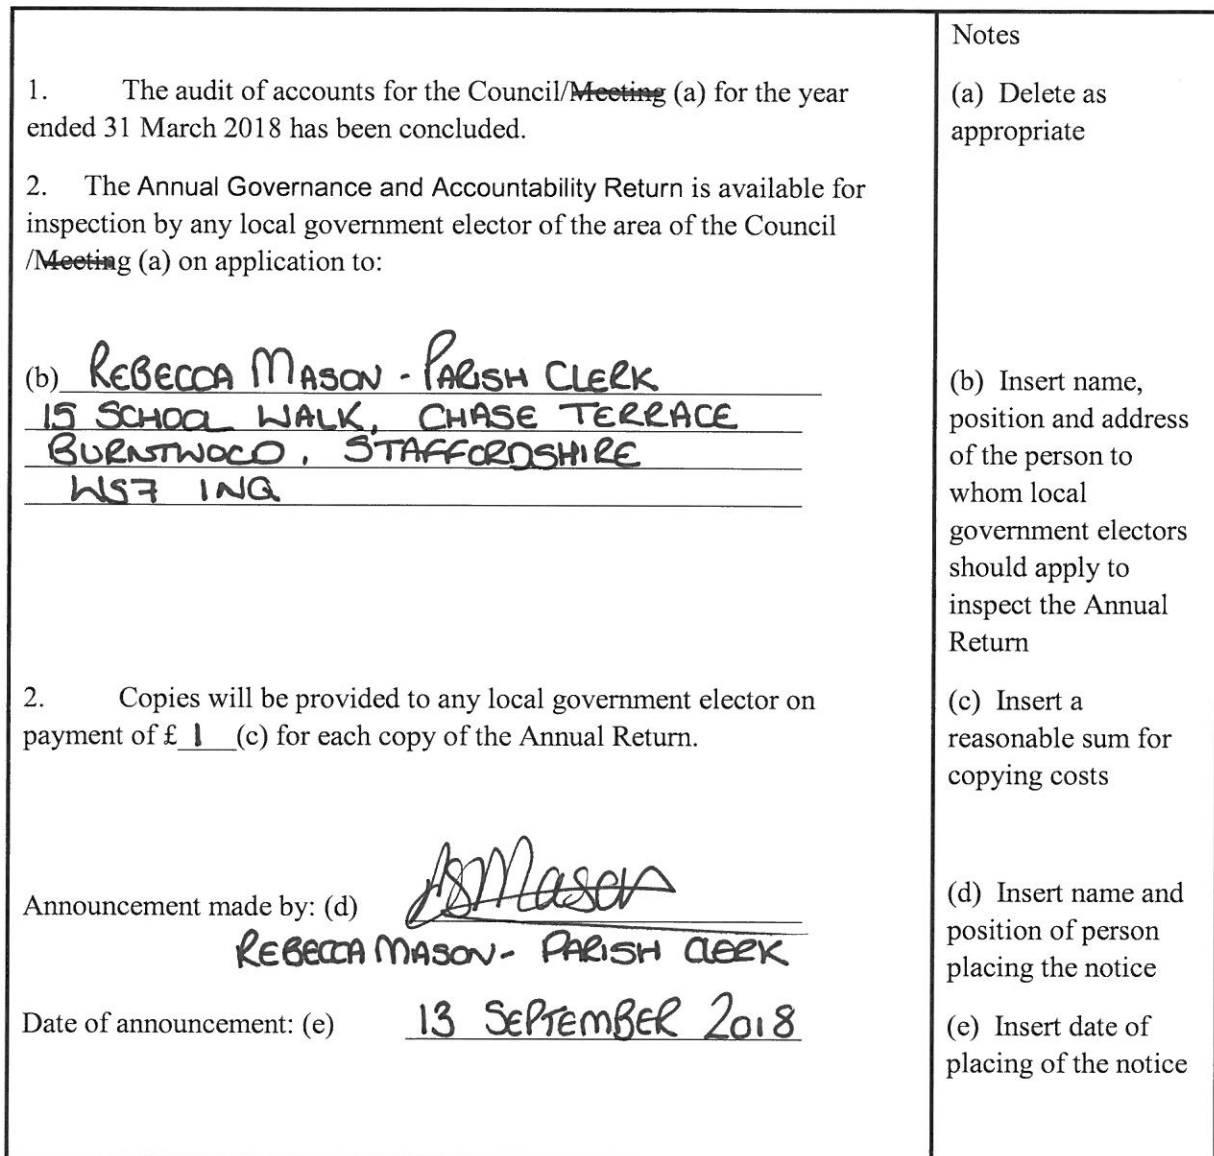 1. The audit of accounts for the Council/Meeting (a) for the year
ended 31 March 2018 has been concluded.
2. The Annual Governance and Accountability Return is available for
inspection by any local government elector of the area of the Council
/Meeting (a) on application to:
(b) REBECCA MASON - PARISH CLERK
15 SCHOOL WALK, CHASE TERRACE
BURNTWOOD, STAFFORDSHIRE
WS7 1NQ
2. Copies will be provided to any local government elector on
payment of £ 1 (c) for each copy of the Annual Return.
Announcement made by: (d) Mason
REBECCA MASON - PARISH CLERK
Date of announcement: (e) 13 SEPTEMBER 2018
Notes
(a) Delete as
appropriate
(b) Insert name,
position and address
of the person to
whom local
government electors
should apply to
inspect the Annual
Return
(c) Insert a
reasonable sum for
copying costs
(d) Insert name and
position of person
placing the notice
(e) Insert date of
placing of the notice